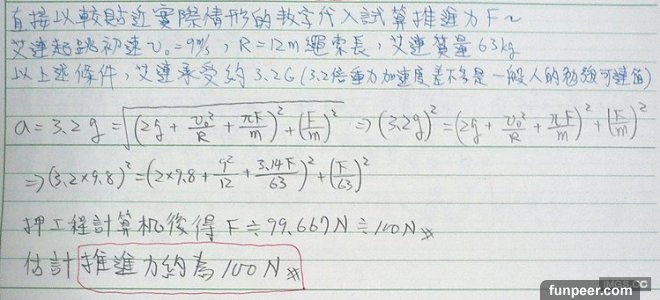 直接以較貼近實際情形的數字代入試算推進力F~
艾連起跳初速v₀=9m/s, R=12m繩索長, 艾連質量63kg
以上述條件, 艾連承受約3.2G(3.2倍重力加速度差不多是一般人的勉強可達值)
a=3.2g=√((2g+v₀²/R+πF/m)²+(F/m)²) ⇒(3.2g)²=(2g+v₀²/R+πF/m)²+(F/m)²
⇒(3.2×9.8)²=(2×9.8+9²/12+3.14F/63)²+(F/63)²
押工程計算机後得F≒99.667N≒100N※
估計推進力約為100N※
IMGS.CC
funpeer.com